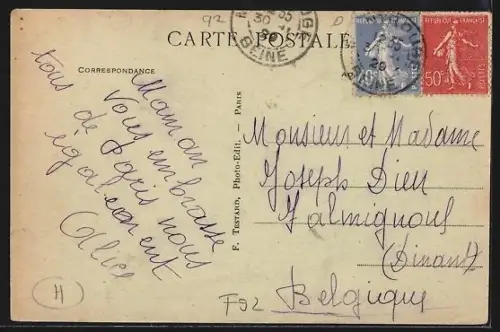 92
CARTE POSTALE
CORRESPONDANCE
REPUBLIQUE FRANÇAISE
40c
REPUBLIQUE FRANÇAISE
50c
SEINE
30
Maman
vous embrasse
tous de Paris nous
également
Alice
F. TESTARD, Photo-Edit. - PARIS
Monsieur et Madame
Joseph Dien
Falmignoul
(Dinant)
Belgique
H
F92